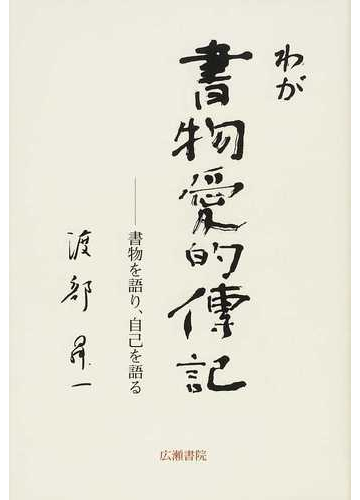 わが
書物愛的傳記
——書物を語り、自己を語る
渡部昇一
広瀬書院